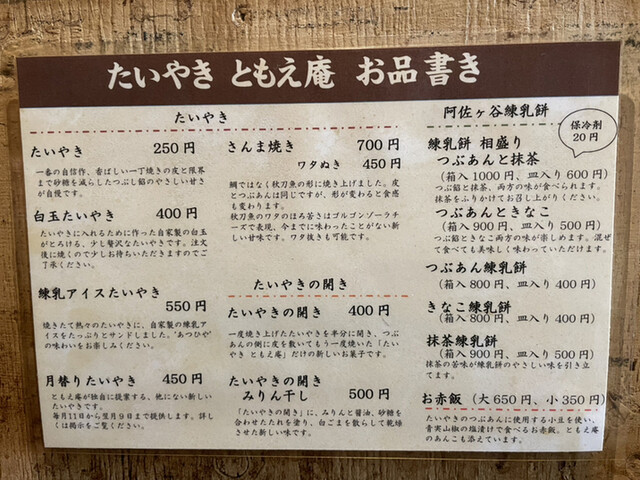 たいやき ともえ庵 お品書き
たいやき
たいやき 250円
一番の自信作、香ばしい一丁焼きの皮と限界
まで砂糖を減らしたつぶし餡のやさしい甘さ
が自慢です。
白玉たいやき 400円
たいやきに入れるために作った自家製の白玉
がとろける、少し贅沢なたいやきです。注文
後に焼くので少しお待ちいただきますのでご
了承ください。
練乳アイスたいやき
550円
焼きたて熱々のたいやきに、自家製の練乳ア
イスをたっぷりとサンドしました。'あつひや'
の味わいをお楽しみください。
月替りたいやき 450円
ともえ庵が独自に提案する、他にない新しい
たいやきです。
毎月11日から翌月9日まで提供します。詳し
くは掲示をご覧ください。
さんま焼き 700円
ワタぬき 450円
鯛ではなく秋刀魚の形に焼き上げました。皮
とつぶあんは同じですが、形が変わると食感
も変わります。
秋刀魚のワタのほろ苦さはブルゴンゾーラチ
ーズで表現、今までに味わったことがない新
しい甘味です。ワタ抜きも可能です。
たいやきの開き
たいやきの開き 400円
一度焼き上げたたいやきを半分に開き、つぶ
あんの側に皮を敷いてもう一度焼いた「たい
やき ともえ庵」だけの新しいお菓子です。
たいやきの開き
みりん干し 500円
「たいやきの開き」に、みりんと醤油、砂糖を
合わせたたれを塗り、白ごまを散らして乾燥
させた新しい味です。
阿佐ヶ谷練乳餅
保冷剤
20円
練乳餅 相盛り
つぶあんと抹茶
(箱入1000円、皿入り600円)
つぶ餡と抹茶、両方の味が食べられます。
抹茶をふりかけてお召し上がりください。
つぶあんときなこ
(箱入900円、皿入り500円)
つぶ餡ときなこ両方の味が楽しめます。混ぜ
て食べても美味しく味わっていただけます。
つぶあん練乳餅
(箱入800円、皿入り400円)
きなこ練乳餅
(箱入800円、皿入り400円)
抹茶練乳餅
(箱入900円、皿入り500円)
抹茶の苦味が練乳餅のやさしい味を引き立
てます。
お赤飯 (大650円、小350円)
たいやきのつぶあんに使用する小豆を使い、
青実山椒の塩漬けで食べるお赤飯。ともえ庵
のあんこも添えています。